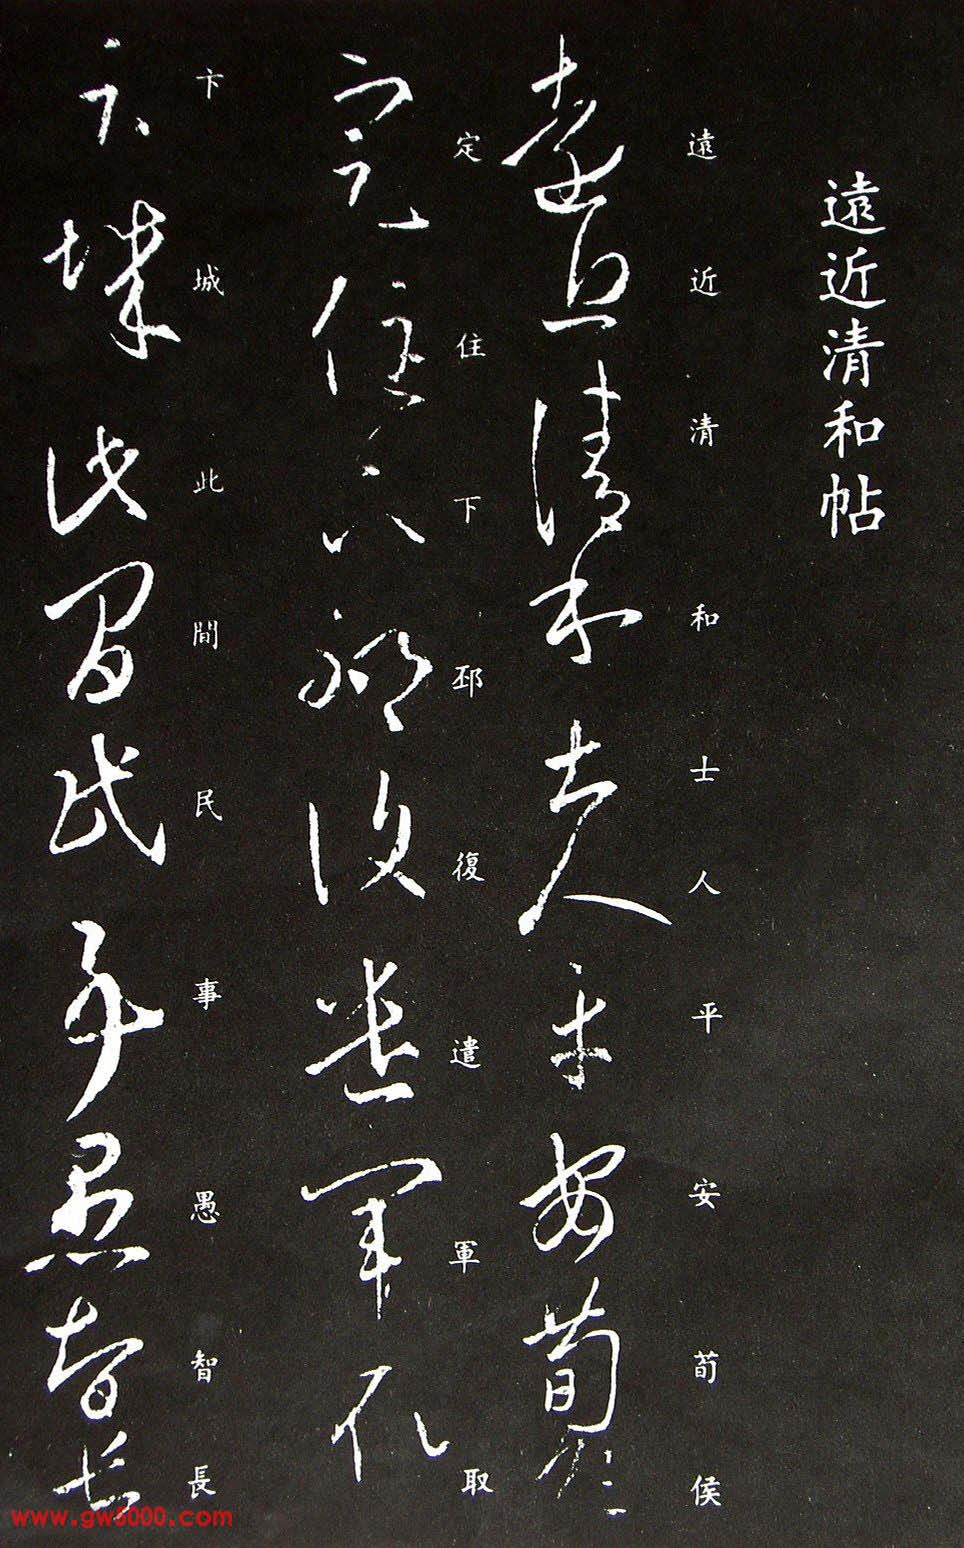 遠近清和帖
遠近清和士人平安荀侯
定住下邳復遣軍取
卞城此間民事愚智長
www.gw5000.com